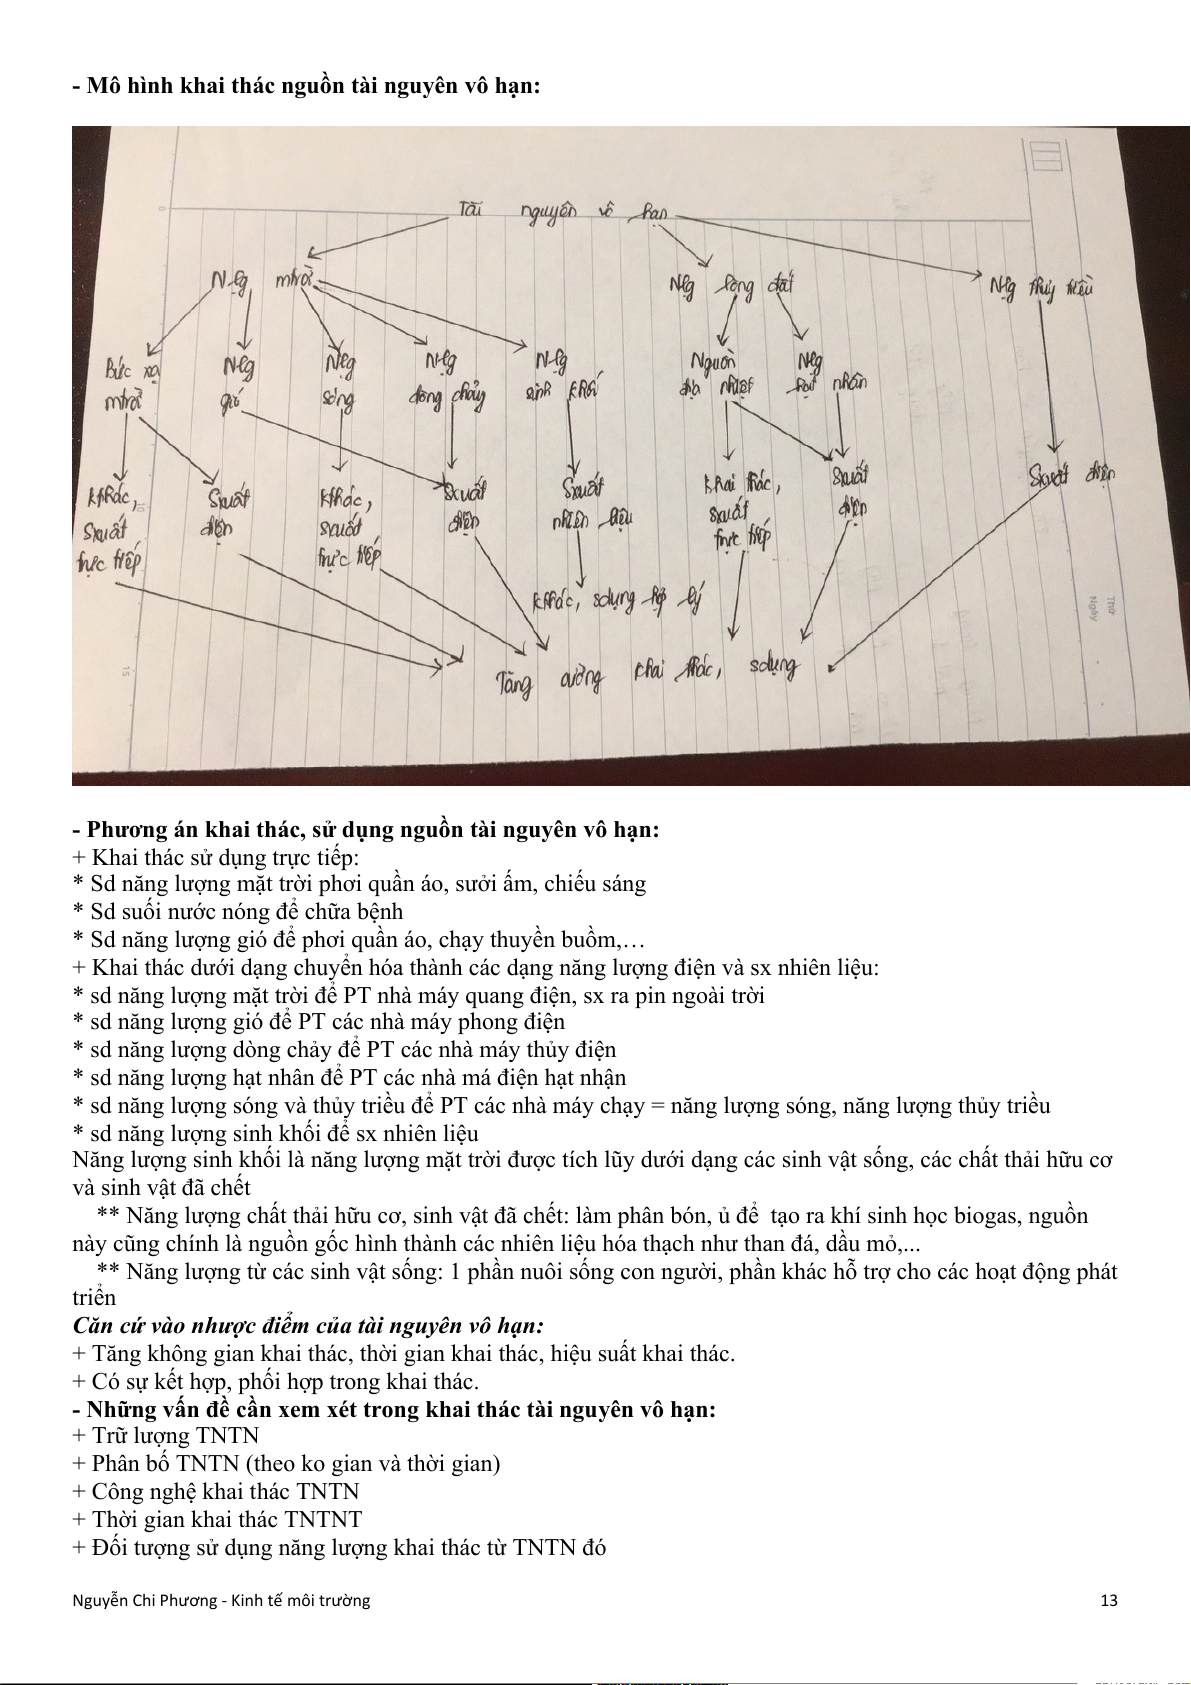 - Mô hình khai thác nguồn tài nguyên vô hạn:
Tài nguyên vô hạn
N-lg mtrời
Nlg lòng đất
Nlg thủy triều
Bức xạ
mtrời
Nlg
gió
Nlg
sóng
N-lg
dòng chảy
N-lg
sinh khối
Nguồn
địa nhiệt
Nlg
hạt nhân
kthác,
sxuất
trực tiếp
Sxuất
điện
kthác,
sxuất
trực tiếp
Sxuất
điện
Sxuất
nhiên liệu
khai thác,
sxuất
trực tiếp
Sxuất
điện
Sxuất điện
kthác, sdụng hợp lý
Tăng cường khai thác, sdụng
Thứ
Ngày
15
- Phương án khai thác, sử dụng nguồn tài nguyên vô hạn:
+ Khai thác sử dụng trực tiếp:
* Sd năng lượng mặt trời phơi quần áo, sưởi ấm, chiếu sáng
* Sd suối nước nóng để chữa bệnh
* Sd năng lượng gió để phơi quần áo, chạy thuyền buồm,…
+ Khai thác dưới dạng chuyển hóa thành các dạng năng lượng điện và sx nhiên liệu:
* sd năng lượng mặt trời để PT nhà máy quang điện, sx ra pin ngoài trời
* sd năng lượng gió để PT các nhà máy phong điện
* sd năng lượng dòng chảy để PT các nhà máy thủy điện
* sd năng lượng hạt nhân để PT các nhà má điện hạt nhận
* sd năng lượng sóng và thủy triều để PT các nhà máy chạy = năng lượng sóng, năng lượng thủy triều
* sd năng lượng sinh khối để sx nhiên liệu
Năng lượng sinh khối là năng lượng mặt trời được tích lũy dưới dạng các sinh vật sống, các chất thải hữu cơ
và sinh vật đã chết
** Năng lượng chất thải hữu cơ, sinh vật đã chết: làm phân bón, ủ để tạo ra khí sinh học biogas, nguồn
này cũng chính là nguồn gốc hình thành các nhiên liệu hóa thạch như than đá, dầu mỏ,...
** Năng lượng từ các sinh vật sống: 1 phần nuôi sống con người, phần khác hỗ trợ cho các hoạt động phát
triển
Căn cứ vào nhược điểm của tài nguyên vô hạn:
+ Tăng không gian khai thác, thời gian khai thác, hiệu suất khai thác.
+ Có sự kết hợp, phối hợp trong khai thác.
- Những vấn đề cần xem xét trong khai thác tài nguyên vô hạn:
+ Trữ lượng TNTN
+ Phân bố TNTN (theo ko gian và thời gian)
+ Công nghệ khai thác TNTN
+ Thời gian khai thác TNTNT
+ Đối tượng sử dụng năng lượng khai thác từ TNTN đó
Nguyễn Chi Phương - Kinh tế môi trường 13